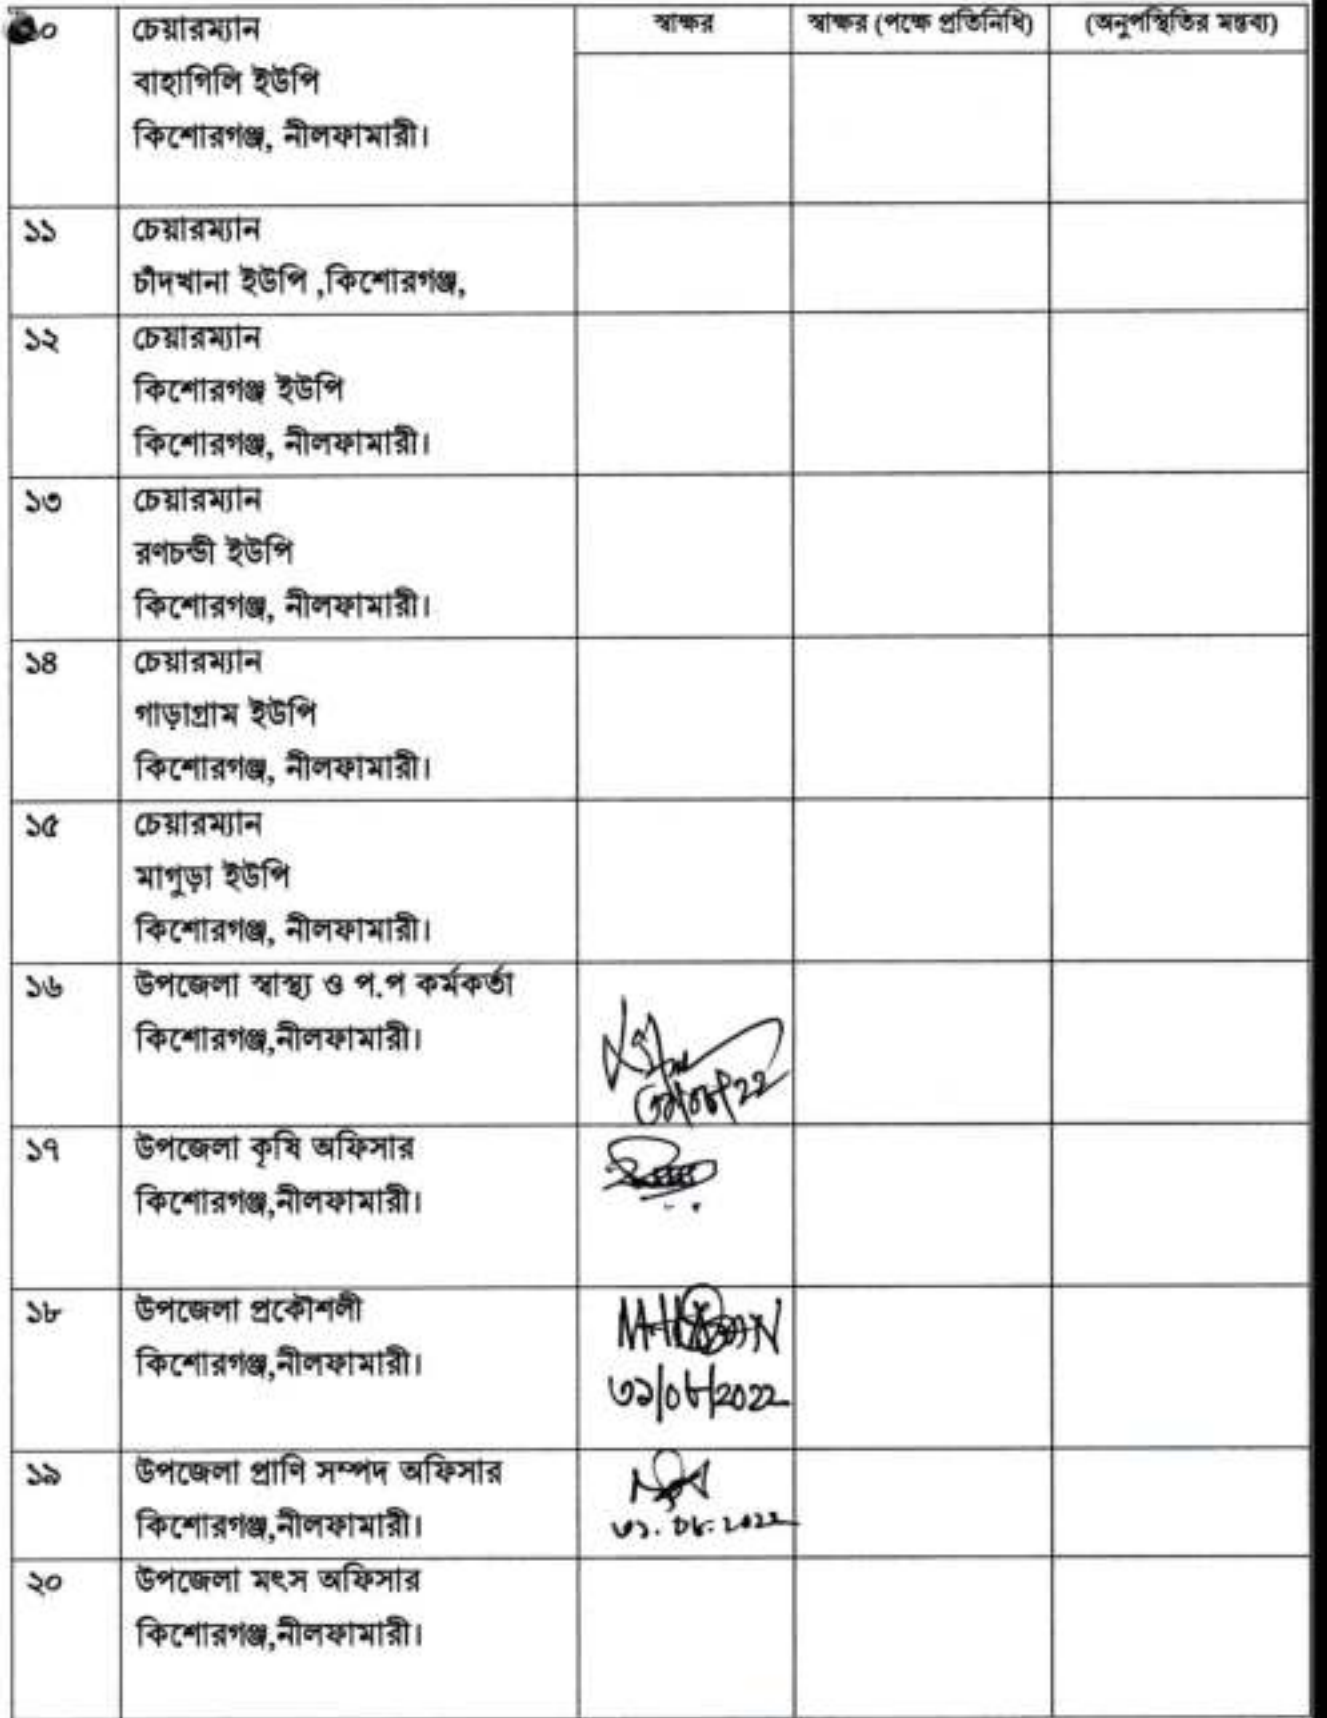 ১০ চেয়ারম্যান স্বাক্ষর স্বাক্ষর (পক্ষে প্রতিনিধি) (অনুপস্থিতির মন্তব্য)
বাহাগিলি ইউপি
কিশোরগঞ্জ, নীলফামারী।
১১ চেয়ারম্যান
চাঁদখানা ইউপি ,কিশোরগঞ্জ,
১২ চেয়ারম্যান
কিশোরগঞ্জ ইউপি
কিশোরগঞ্জ, নীলফামারী।
১৩ চেয়ারম্যান
রণচন্ডী ইউপি
কিশোরগঞ্জ, নীলফামারী।
১৪ চেয়ারম্যান
গাড়াগ্রাম ইউপি
কিশোরগঞ্জ, নীলফামারী।
১৫ চেয়ারম্যান
মাগুড়া ইউপি
কিশোরগঞ্জ, নীলফামারী।
১৬ উপজেলা স্বাস্থ্য ও প.প কর্মকর্তা
কিশোরগঞ্জ,নীলফামারী।
৩১/০৮/২২
১৭ উপজেলা কৃষি অফিসার
কিশোরগঞ্জ,নীলফামারী।
১৮ উপজেলা প্রকৌশলী
কিশোরগঞ্জ,নীলফামারী।
৩১/০৮/২০২২
১৯ উপজেলা প্রাণি সম্পদ অফিসার
কিশোরগঞ্জ,নীলফামারী।
৩১.০৮.২০২২
২০ উপজেলা মৎস অফিসার
কিশোরগঞ্জ,নীলফামারী।